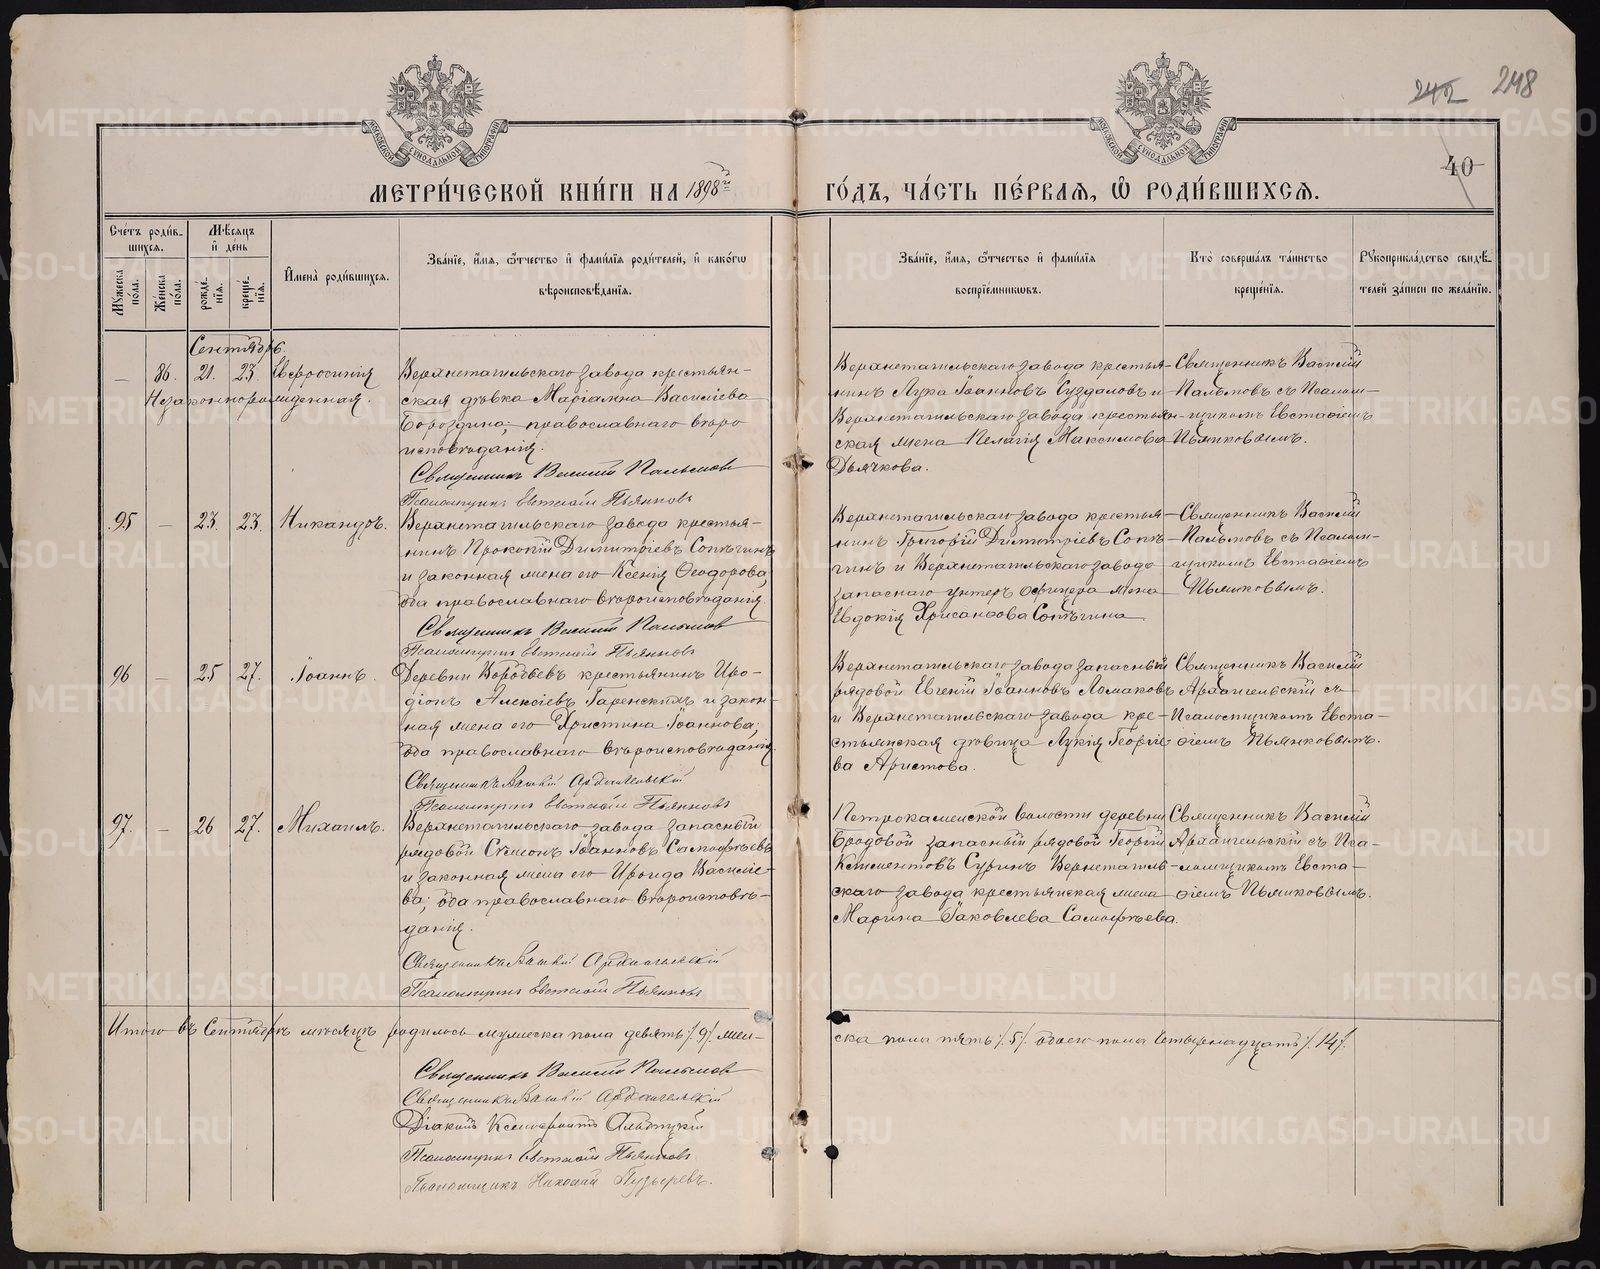 242 248
40
МОСКОВСКОЙ СѴНОДАЛЬНОЙ ТИПОГРАФІИ
МОСКОВСКОЙ СѴНОДАЛЬНОЙ ТИПОГРАФІИ
МЕТРИ́ЧЕСКОЙ КНИ́ГИ НА 1898й
ГО́ДЪ, ЧА́СТЬ ПЕ́РВАЯ, Ѿ РОДИ́ВШИХСЯ.
Сче́тъ роди́в-
шихся.
Мꙋжеска по́ла.
Же́нска по́ла.
Мѣ́сяцъ
и҆ де́нь
рожде́-
нїя.
креще́-
нїя.
И҆мена̀ роди́вшихся.
Зва́нїе, и҆́мя, ѻ҆́тчество и҆ фами́лїя роди́телей, и҆ како́гѡ
вѣроисповѣ́данїя.
Зва́нїе, и҆́мя, ѻ҆́тчество и҆ фами́лїя
воспрїе́мникѡвъ.
Кто̀ соверша́лъ та́инство
креще́нїя.
Рꙋкоприкла́дство свидѣ́-
телей за́писи по жела́нїю.
Сентябрь.
— 86. 21. 23. Евфросинія
Незаконнорожденная.
Верхнетагильскаго завода крестьян-
ская дѣвка Маріанна Василіева
Бороздина; православнаго вѣро
исповѣданія.
Священникъ Василій Пальмовъ
Псаломщикъ Евстаѳій Пьянковъ
Верхнетагильскаго завода крестья-
нинъ Лука Іоанновъ Суздаловъ и
Верхнетагильскаго завода крестьян-
ская жена Пелагія Максимова
Дьячкова.
Священникъ Василій
Пальмовъ съ Псалом-
щикомъ Евстаѳіемъ
Пьянковымъ.
95 — 23. 23. Никандръ.
Верхнетагильскаго завода крестья-
нинъ Прокопій Димитріевъ Сопѣгинъ
и законная жена его Ксенія Ѳеодорова,
оба православнаго вѣроисповѣданія.
Священникъ Василій Пальмовъ
Псаломщикъ Евстаѳій Пьянковъ
Верхнетагильскаго завода крестья-
нинъ Григорій Димитріевъ Сопѣ-
гинъ и Верхнетагильскаго завода
запаснаго унтеръ офицера жена
Евдокія Хрисанѳова Сопѣгина
Священникъ Василій
Пальмовъ съ Псалом-
щикомъ Евстаѳіемъ
Пьянковымъ.
96 — 25 27. Іоаннъ.
Деревни Воробьевъ крестьянинъ Иро-
діонъ Алексіевъ Гаренскихъ и закон-
ная жена его Христина Іоаннова;
оба православнаго вѣроисповѣданія.
Священникъ Василій Архангельскій
Псаломщикъ Евстаѳій Пьянковъ
Верхнетагильскаго завода запасный
рядовой Евгеній Іоанновъ Ломаковъ
и Верхнетагильскаго завода кре-
стьянская дѣвица Лукія Георгіе-
ва Аристова.
Священникъ Василій
Архангельскій съ
Псаломщикомъ Евста-
ѳіемъ Пьянковымъ.
97. — 26 27. Михаилъ.
Верхнетагильскаго завода запасный
рядовой Сѵмеонъ Іоанновъ Самофѣевъ
и законная жена его Ироида Василіе-
ва; оба православнаго вѣроисповѣ-
данія.
Священникъ Василій Архангельскій
Псаломщикъ Евстаѳій Пьянковъ
Петрокаменской волости деревни
Бродовой запасный рядовой Георгій
Климентовъ Суринъ Верхнетагиль-
скаго завода крестьянская жена
Марина Іаковлева Самофѣева.
Священникъ Василій
Архангельскій съ Пса-
ломщикомъ Евста-
ѳіемъ Пьянковымъ.
Итого въ Сентябрѣ мѣсяцѣ родилось мужеска пола девять /.9/. жен-
ска пола пять /.5/. обоего пола четырнадцать /.14/.
Священникъ Василій Пальмовъ
Священникъ Василій Архангельскій
Діаконъ
Псаломщикъ Евстаѳій Пьянковъ
Псаломщикъ Николай Пузыревъ.